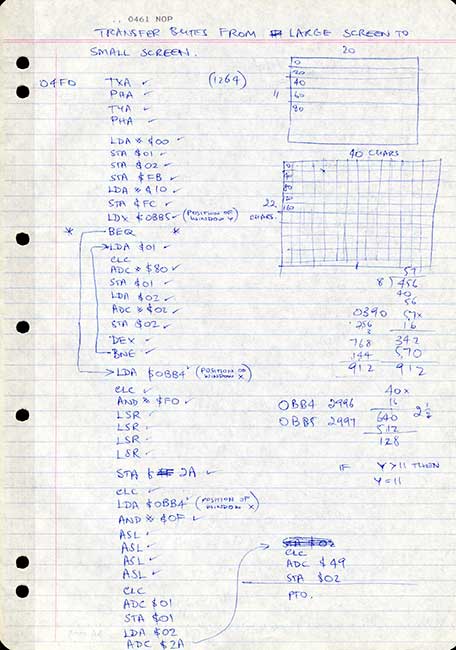 .. 0461 NOP
TRANSFER BYTES FROM LARGE SCREEN TO
SMALL SCREEN.
04F0 TXA ✓ (1264)
PHA ✓
TYA ✓
PHA ✓
LDA * $00 ✓
STA $01 ✓
STA $02 ✓
STA $FB ✓
LDA * $10 ✓
STA $FC ✓
LDX $0BB5 ✓ (POSITION OF WINDOW Y)
* BEQ *
LDA $01 ✓
CLC
ADC * $80 ✓
STA $01 ✓
LDA $02 ✓
ADC * $02 ✓
STA $02 ✓
DEX ✓
BNE ✓
LDA $0BB4 ✓ (POSITION OF WINDOW X)
CLC ✓
AND * $F0 ✓
LSR ✓
LSR ✓
LSR ✓
LSR ✓
STA $ 2A ✓
CLC ✓
LDA $0BB4 ✓ (POSITION OF WINDOW X)
AND * $0F ✓
ASL ✓
ASL ✓
ASL ✓
ASL ✓
CLC
ADC $01
STA $01
LDA $02
ADC $2A
STA $02
CLC
ADC $49
STA $02
PTO.
20
0
20
40
60
80
11
40 CHARS
0
40
80
120
160
22
CHARS.
57
8 ) 456
40
56
0390
256
3
768
144
912
57x
16
342
570
912
0BB4 2996
0BB5 2997
40x
16
640
512
128
2 1/2
IF Y > 11 THEN
Y = 11